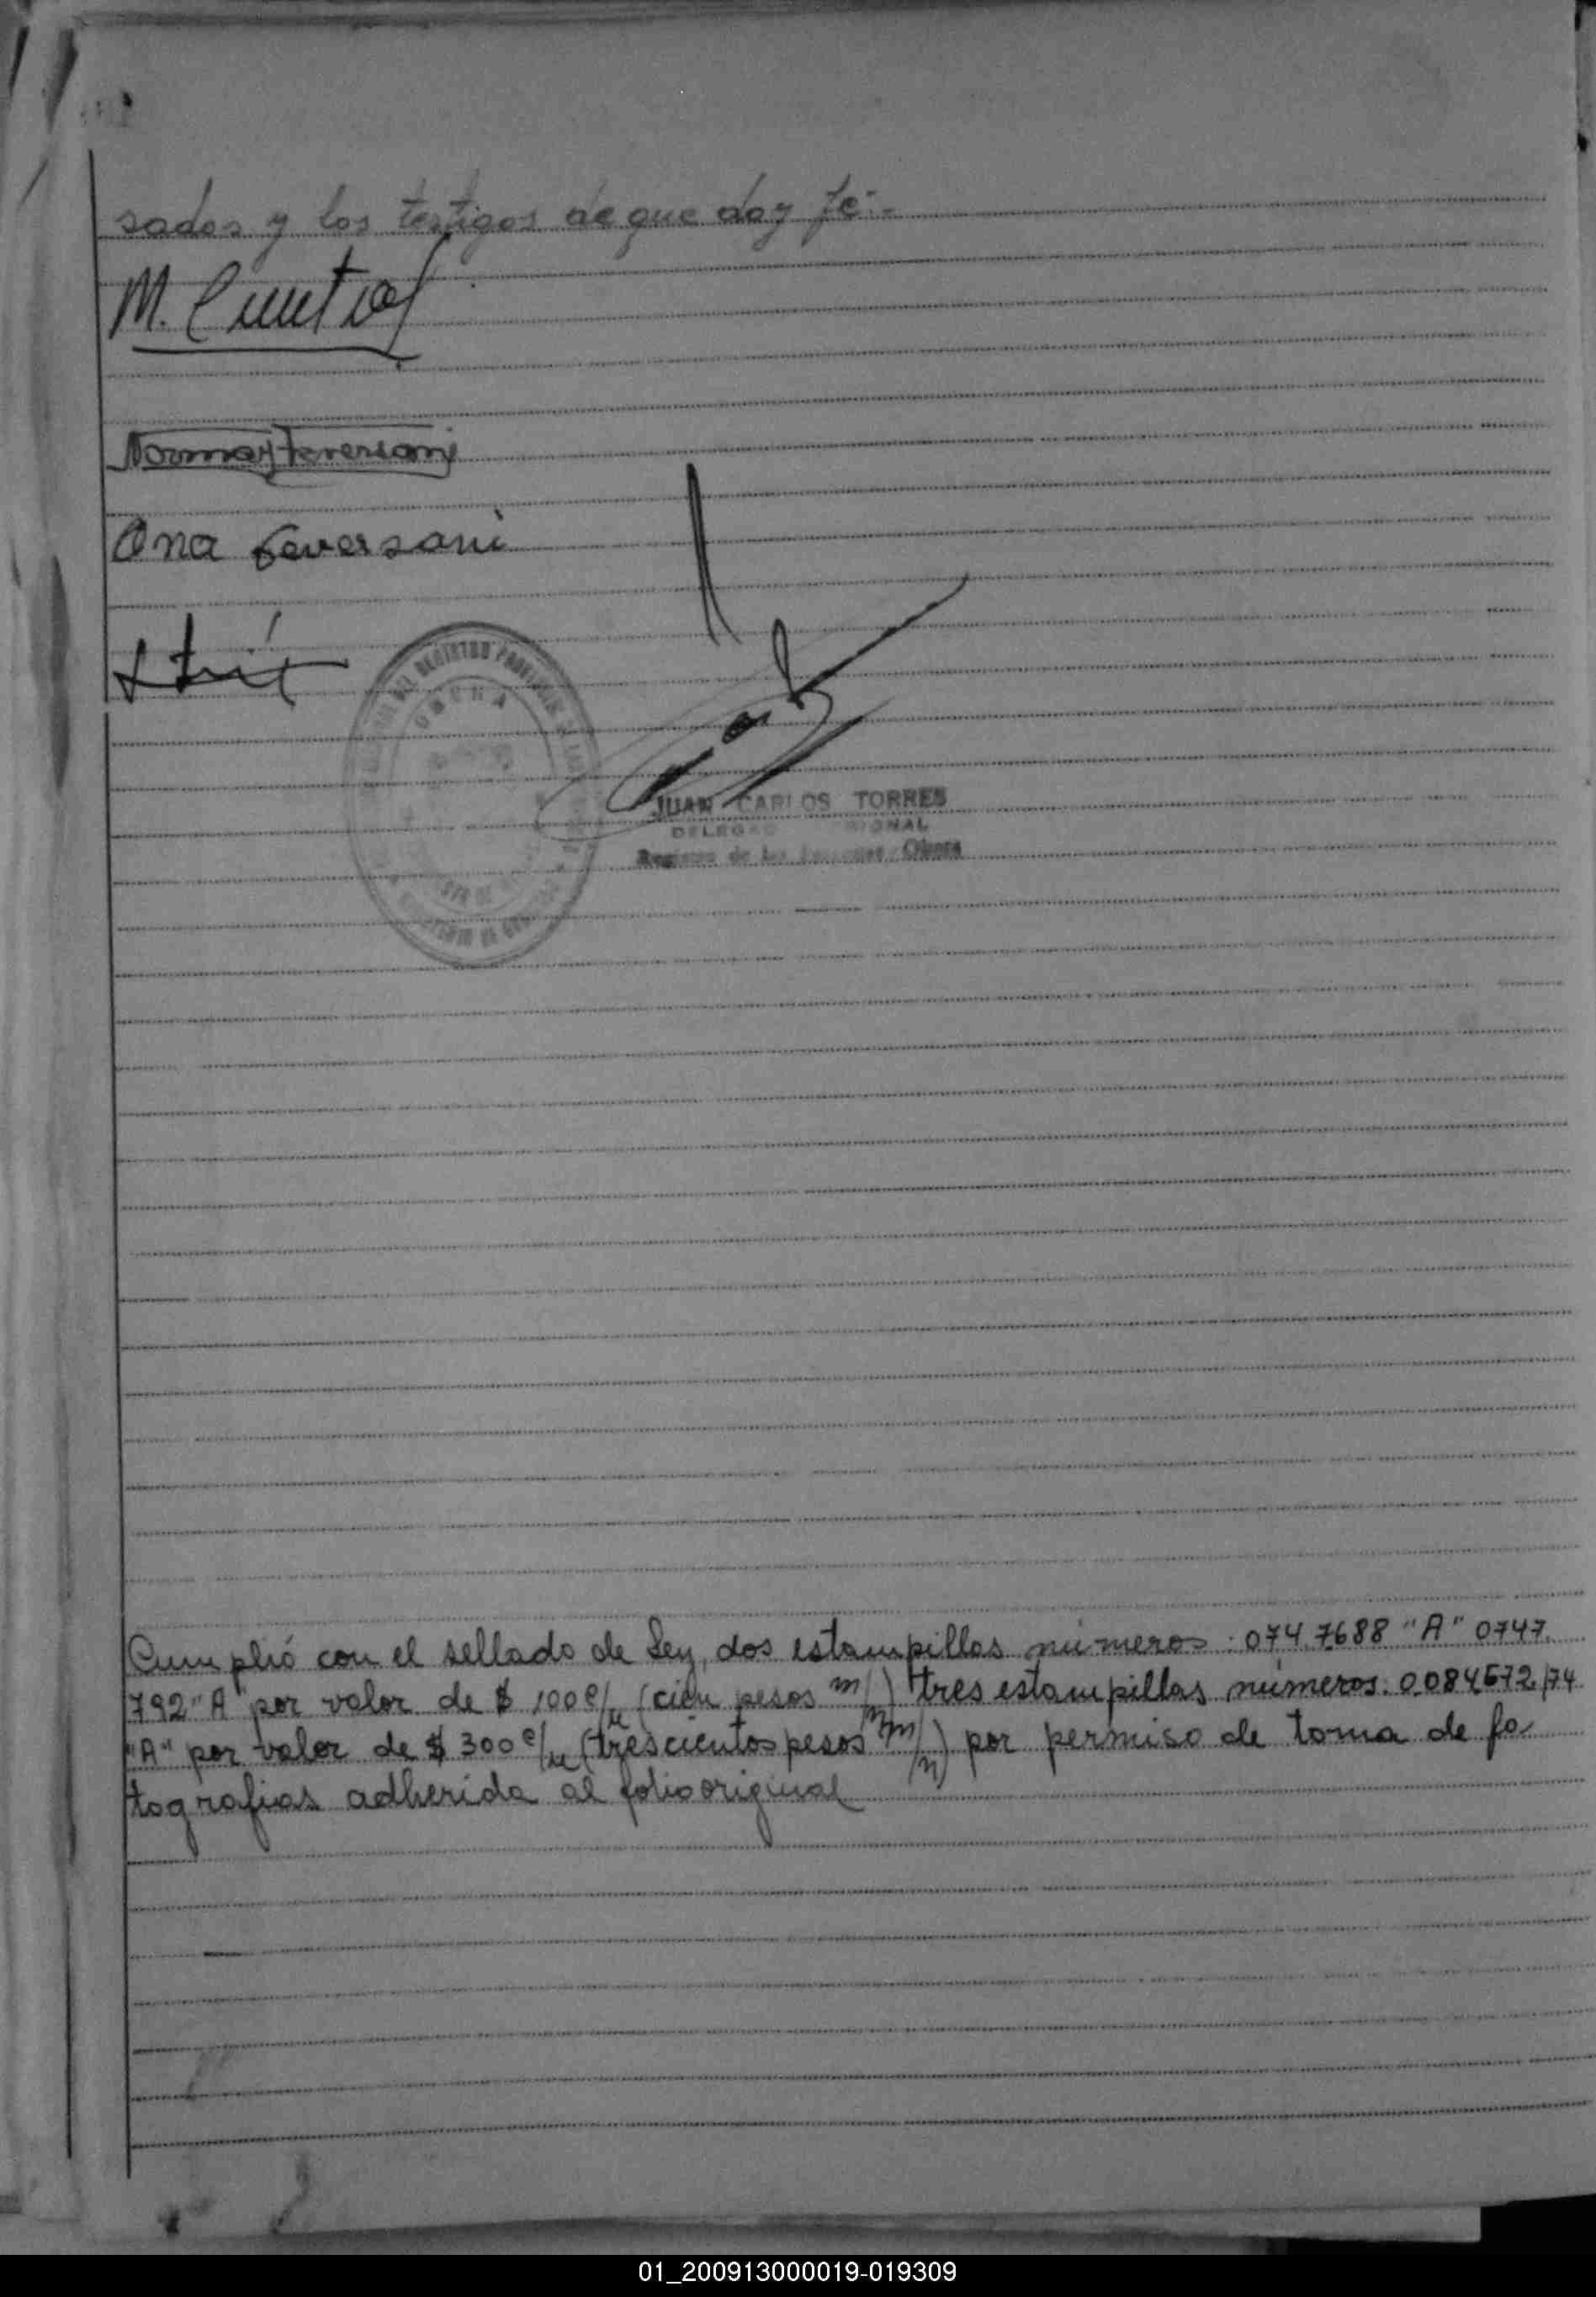 sados y los testigos de que doy fé.-
M.
Norma Feversani
Ana Feversani
DEL REGISTRO PROVINCIAL DE LAS
OBERA
JUAN CARLOS TORRES
DELEGADO REGIONAL
Registro de las Personas Oberá
Cumplió con el sellado de Ley, dos estampillas números: 0747688 "A" 0747
792 "A" por valor de $ 100 c/u (cien pesos m/n) tres estampillas números: 0084672/74
"A" por valor de $ 300 c/u (trescientos pesos m/n) por permiso de toma de fo-
tografias adherida al folio original
01_200913000019-019309